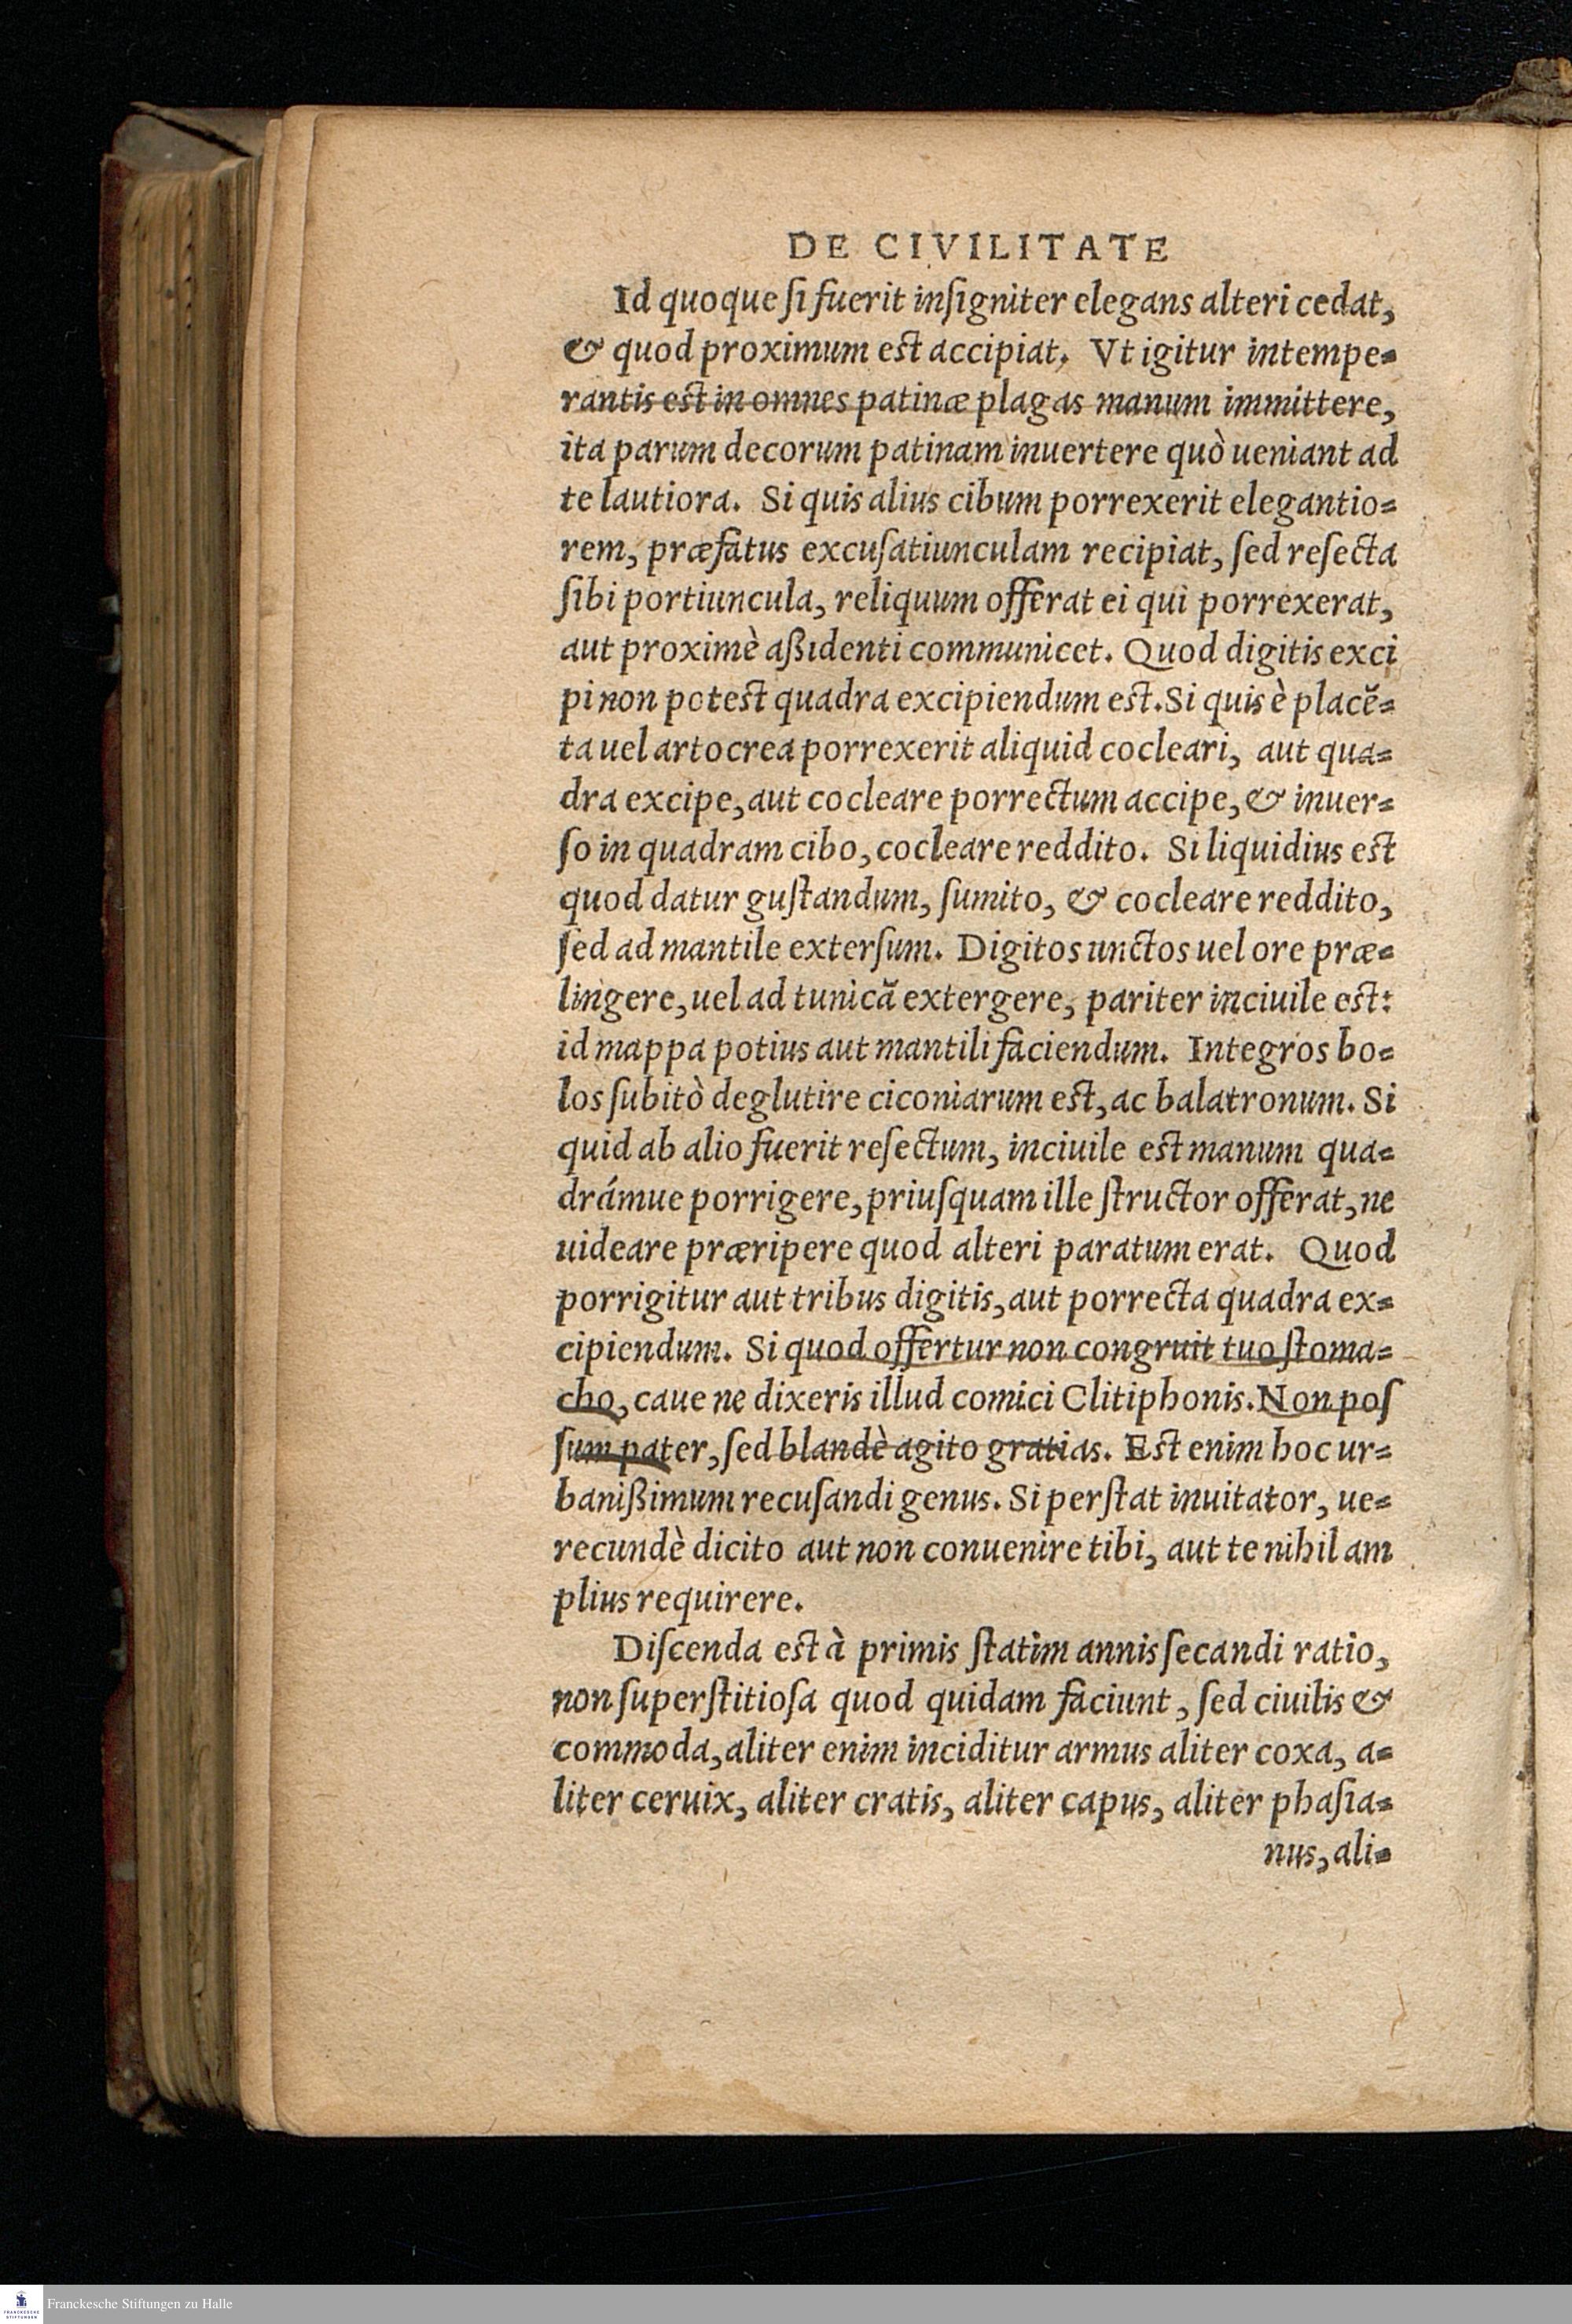 DE CIVILITATE
Id quoque ſi fuerit inſigniter elegans alteri cedat,
& quod proximum est accipiat. Vt igitur intempe=
rantis est in omnes patinæ plagas manum immittere,
ita parum decorum patinam inuertere quò ueniant ad
te lautiora. Si quis alius cibum porrexerit elegantio=
rem, præfatus excuſatiunculam recipiat, ſed reſecta
ſibi portiuncula, reliquum offerat ei qui porrexerat,
aut proximè aßidenti communicet. Quod digitis exci
pi non potest quadra excipiendum est. Si quis è placẽ=
ta uel artocrea porrexerit aliquid cocleari, aut qua=
dra excipe, aut cocleare porrectum accipe, & inuer=
ſo in quadram cibo, cocleare reddito. Si liquidius est
quod datur guſtandum, ſumito, & cocleare reddito,
ſed ad mantile exterſum. Digitos unctos uel ore præ=
lingere, uel ad tunicã extergere, pariter inciuile est:
id mappa potius aut mantili faciendum. Integros bo=
los ſubitò deglutire ciconiarum est, ac balatronum. Si
quid ab alio fuerit reſectum, inciuile est manum qua=
drámue porrigere, priuſquam ille ſtructor offerat, ne
uideare præripere quod alteri paratum erat. Quod
porrigitur aut tribus digitis, aut porrecta quadra ex=
cipiendum. Si quod offertur non congruit tuo ſtoma=
cho, caue ne dixeris illud comici Clitiphonis. Non poſ
ſum pater, ſed blandè agito gratias. Est enim hoc ur=
banißimum recuſandi genus. Si perſtat inuitator, ue=
recundè dicito aut non conuenire tibi, aut te nihil am
plius requirere.
Diſcenda est à primis ſtatim annis ſecandi ratio,
non ſuperſtitioſa quod quidam faciunt, ſed ciuilis &
commoda, aliter enim inciditur armus aliter coxa, a=
liter ceruix, aliter cratis, aliter capus, aliter phaſia=
nus, ali=
FRANCKESCHE
STIFTUNGEN
Franckesche Stiftungen zu Halle